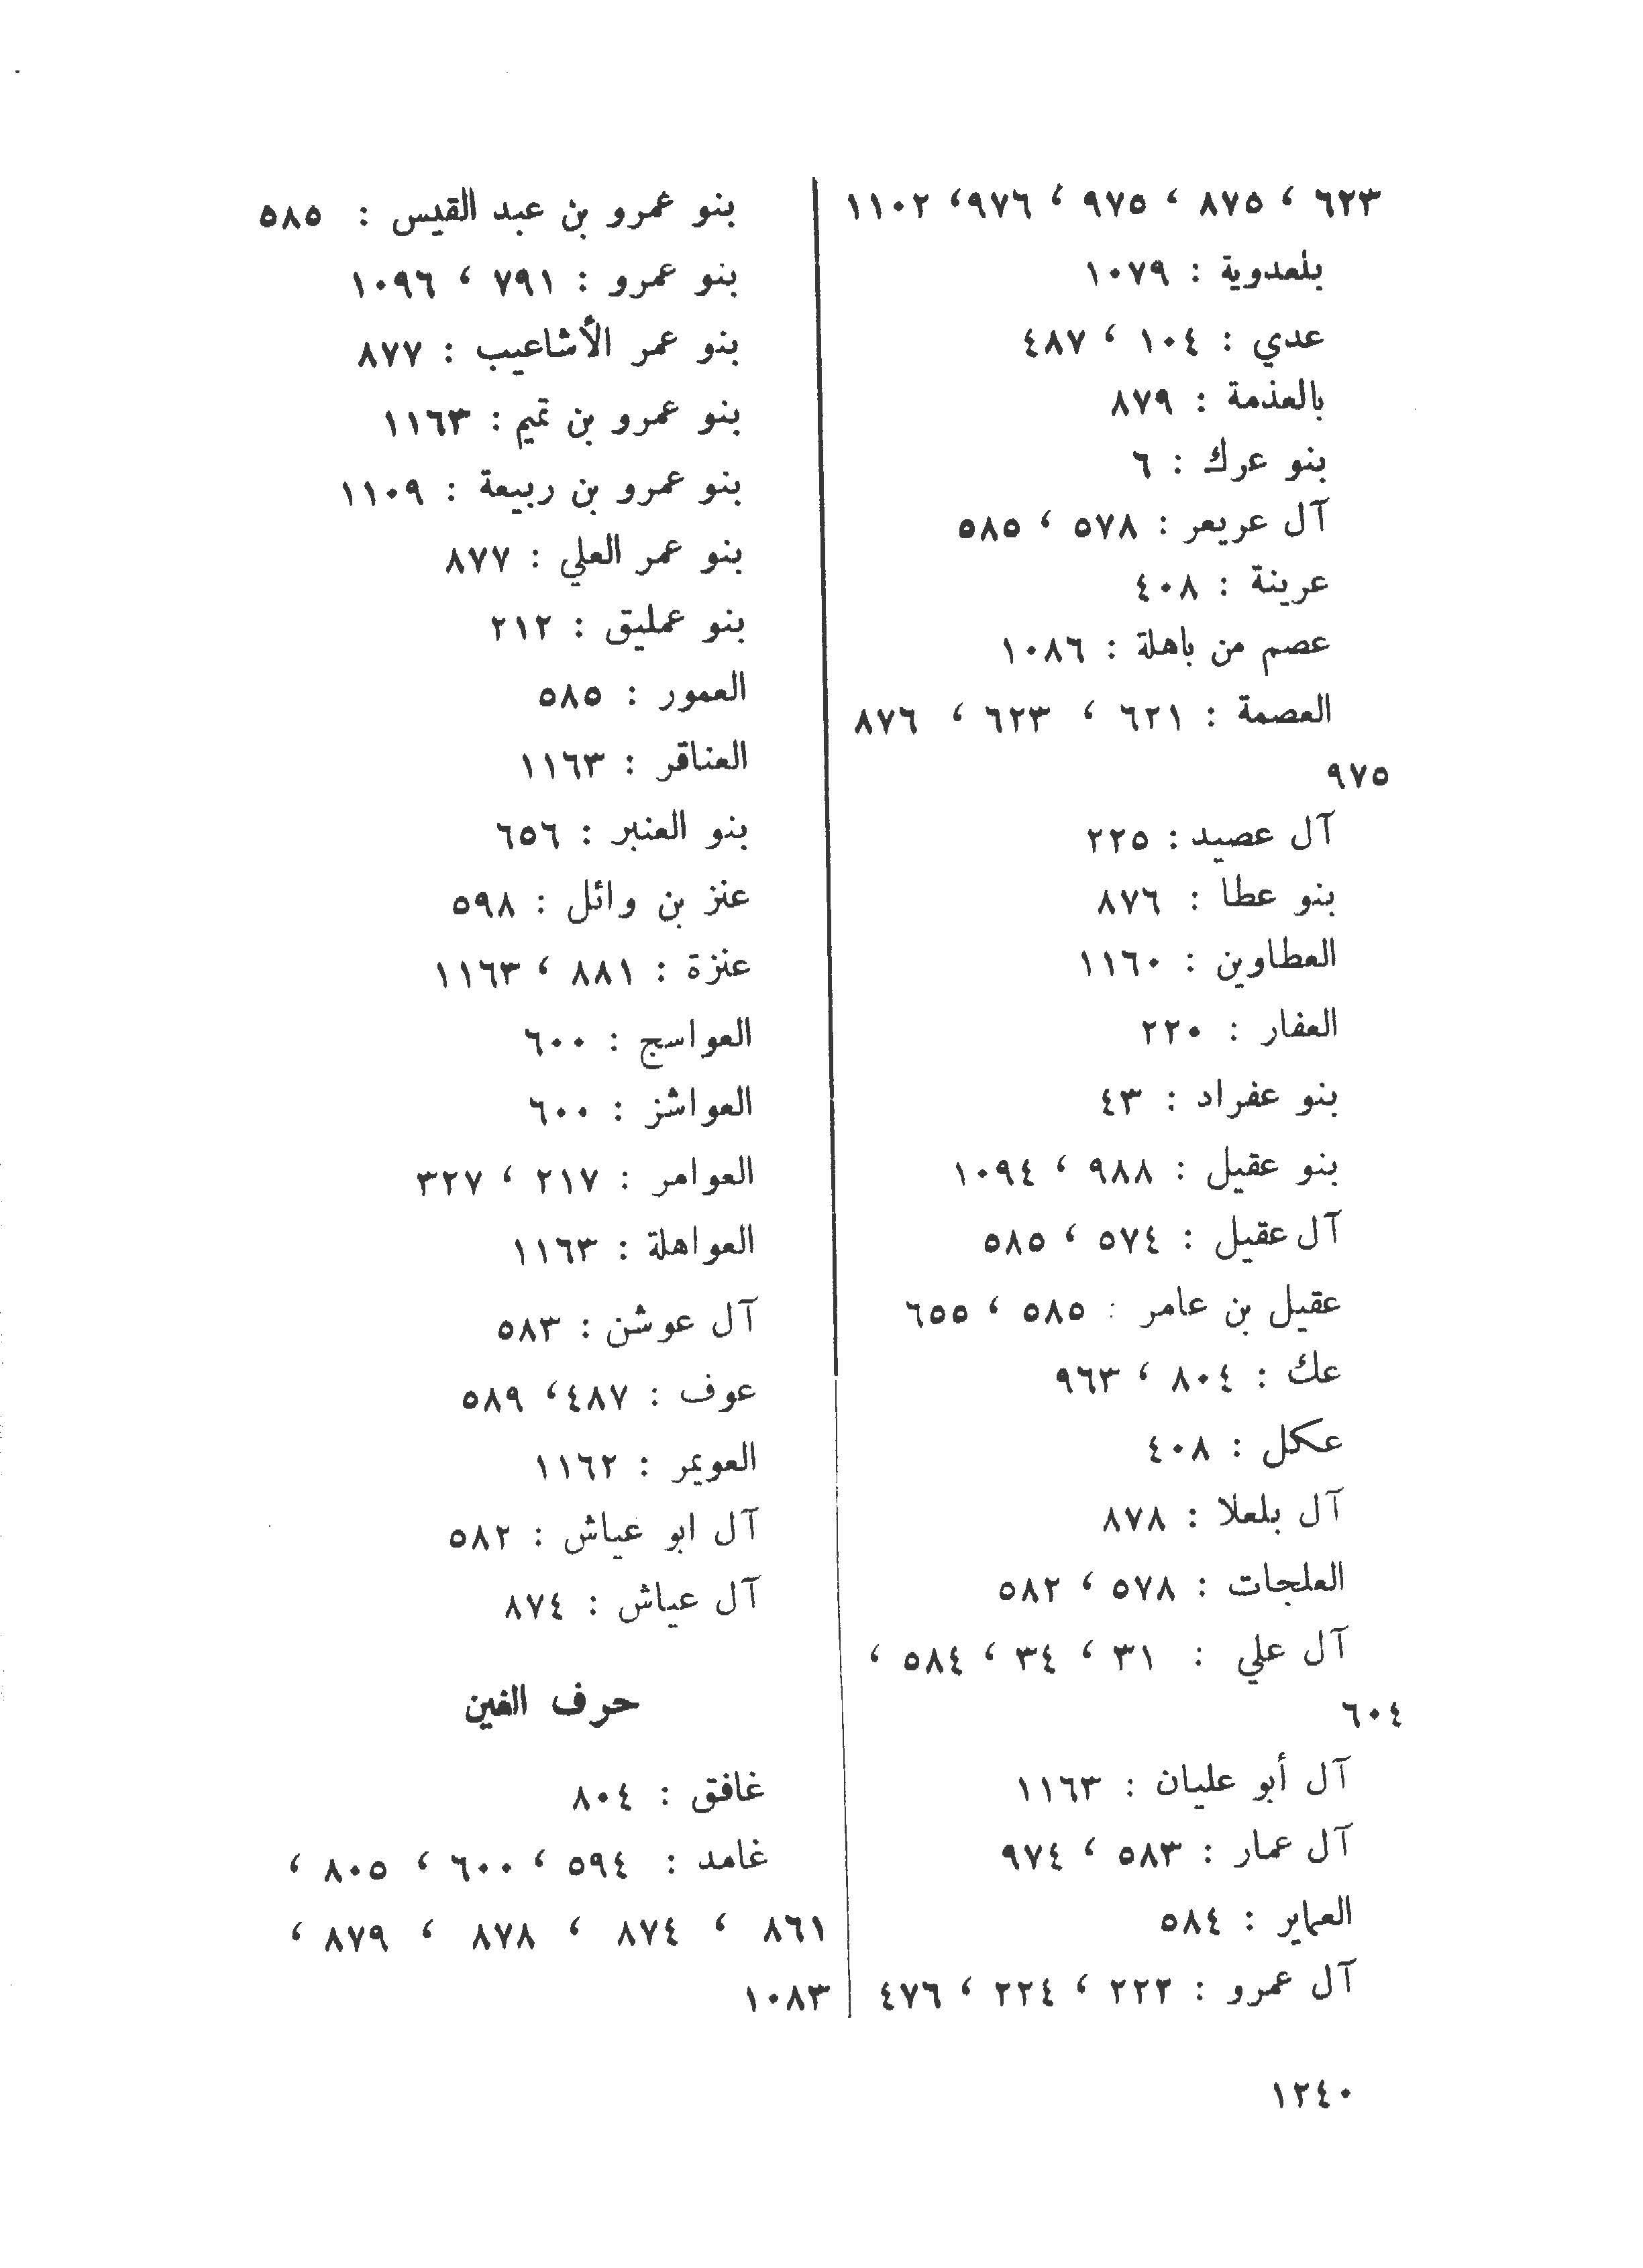 ٦٢٣ ، ٨٧٥ ، ٩٧٥ ، ٩٧٦، ١١٠٢
بلعدوية : ١٠٧٩
عدي : ١٠٤ ، ٤٨٧
بالعذمة : ٨٧٩
بنو عرك : ٦
آل عريعر : ٥٧٨ ، ٥٨٥
عرينة : ٤٠٨
عصم من باهلة : ١٠٨٦
العصمة : ٦٢١ ، ٦٢٣ ، ٨٧٦
٩٧٥
آل عصيد : ٢٢٥
بنو عطا : ٨٧٦
العطاوين : ١١٦٠
العفار : ٢٢٠
بنو عفراد : ٤٣
بنو عقيل : ٩٨٨ ، ١٠٩٤
آل عقيل : ٥٧٤ ، ٥٨٥
عقيل بن عامر : ٥٨٥ ، ٦٥٥
عك : ٨٠٤ ، ٩٦٣
عكل : ٤٠٨
آل بلعلا : ٨٧٨
العلجات : ٥٧٨ ، ٥٨٢
آل علي : ٣١ ، ٣٤ ، ٥٨٤ ،
٦٠٤
آل أبو عليان : ١١٦٣
آل عمار : ٥٨٣ ، ٩٧٤
العماير : ٥٨٤
آل عمرو : ٢٢٢ ، ٢٢٤ ، ٤٧٦
بنو عمرو بن عبد القيس : ٥٨٥
بنو عمرو : ٧٩١ ، ١٠٩٦
بنو عمر الأشاعيب : ٨٧٧
بنو عمرو بن تميم : ١١٦٣
بنو عمرو بن ربيعة : ١١٠٩
بنو عمر العلي : ٨٧٧
بنو عمليق : ٢١٢
العمور : ٥٨٥
العناقر : ١١٦٣
بنو العنبر : ٦٥٦
عنز بن وائل : ٥٩٨
عنزة : ٨٨١ ، ١١٦٣
العواسج : ٦٠٠
العواشز : ٦٠٠
العوامر : ٢١٧ ، ٣٢٧
العواهلة : ١١٦٣
آل عوشن : ٥٨٣
عوف : ٤٨٧، ٥٨٩
العويمر : ١١٦٢
آل ابو عياش : ٥٨٢
آل عياش : ٨٧٤
حرف الغين
غافق : ٨٠٤
غامد : ٥٩٤ ، ٦٠٠ ، ٨٠٥ ،
٨٦١ ، ٨٧٤ ، ٨٧٨ ، ٨٧٩ ،
١٠٨٣
١٢٤٠